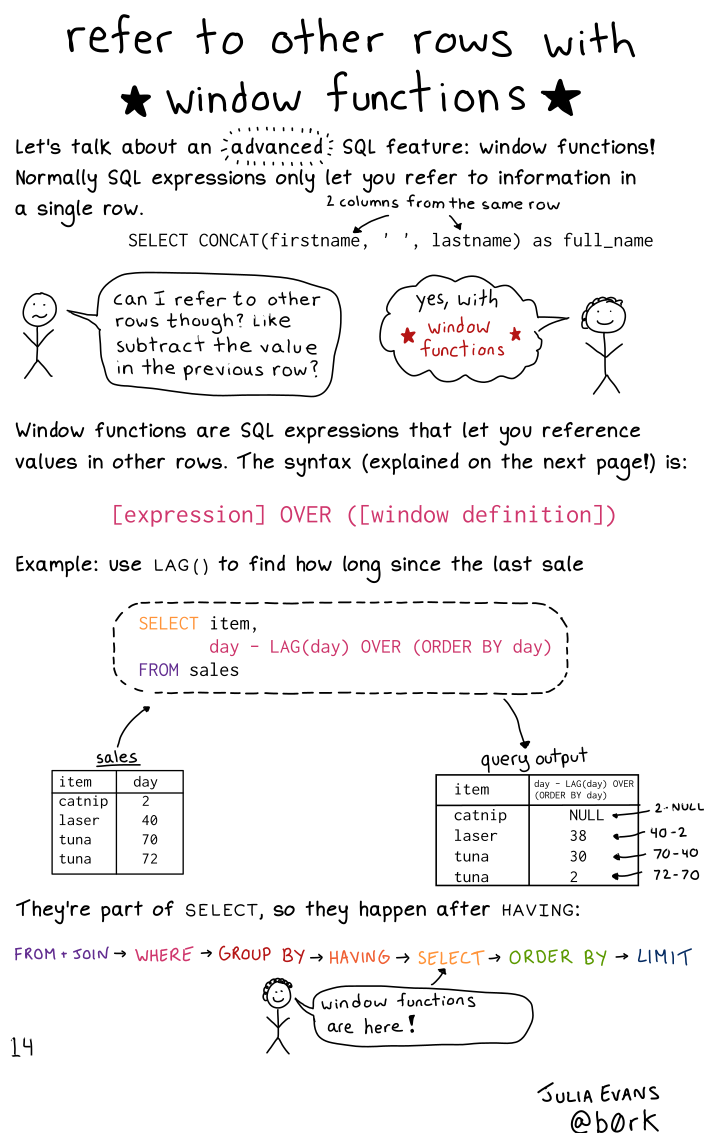 refer to other rows with
★ window functions ★
Let's talk about an advanced SQL feature: window functions!
Normally SQL expressions only let you refer to information in
a single row.
2 columns from the same row
SELECT CONCAT(firstname, ' ', lastname) as full_name
can I refer to other
rows though? Like
subtract the value
in the previous row?
yes, with
★ window ★
functions
Window functions are SQL expressions that let you reference
values in other rows. The syntax (explained on the next page!) is:
[expression] OVER ([window definition])
Example: use LAG() to find how long since the last sale
SELECT item,
day - LAG(day) OVER (ORDER BY day)
FROM sales
sales
item day
catnip 2
laser 40
tuna 70
tuna 72
query output
item day - LAG(day) OVER
(ORDER BY day)
catnip NULL 2-NULL
laser 38 40-2
tuna 30 70-40
tuna 2 72-70
They're part of SELECT, so they happen after HAVING:
FROM + JOIN → WHERE → GROUP BY → HAVING → SELECT → ORDER BY → LIMIT
window functions
are here!
14
JULIA EVANS
@b0rk